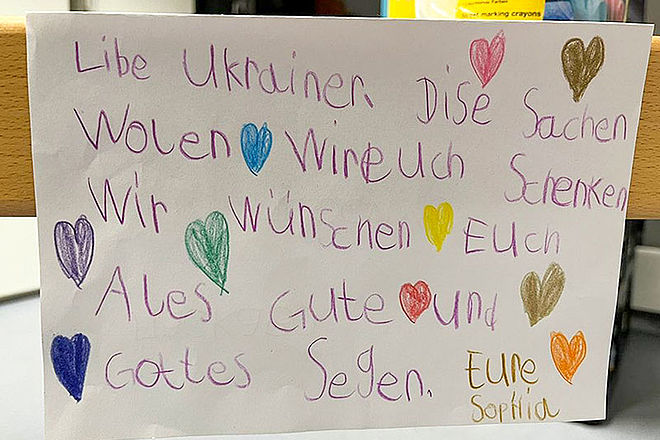 marking crayons
Libe Ukrainer. Dise Sachen
Wolen Wir Euch Schenken
Wir Wünschen Euch
Ales Gute und
Gottes Segen. Eure
Sophia